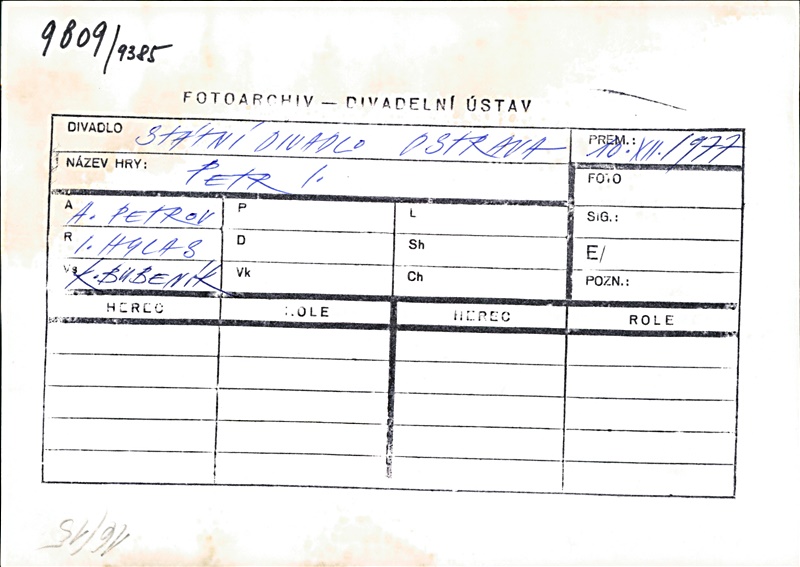 9809/9385
FOTOARCHIV — DIVADELNÍ ÚSTAV
DIVADLO STÁTNÍ DIVADLO OSTRAVA
PREM.: 10. XII. 1977
NÁZEV HRY: PETR I.
FOTO
A A. PETROV P L
SIG.:
R I. HYLAS D Sh
E/
Vs K. BUBENÍK Vk Ch
POZN.:
HEREC ROLE HEREC ROLE
16/15